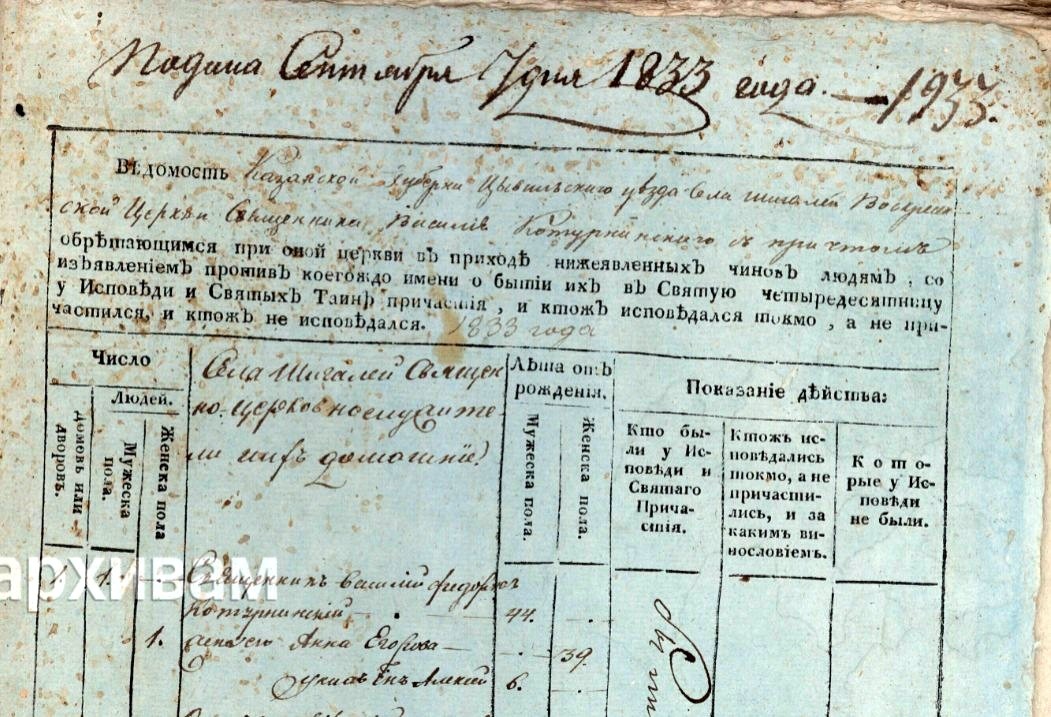 Подана Сентября 7 дня 1833 года. — 1933.
Вѣдомость Казанской Губернии Цывильскаго уѣзда села Шигалей Воскресен
ской Церкви Священника Василія Котурнинскаго съ причтомъ
обрѣтающимся при оной церкви въ приходѣ нижеявленныхъ чиновъ людямъ, со
изъявленіемъ противъ коегождо имени о бытіи ихъ въ Святую четыредесятницу
у Исповѣди и Святыхъ Таинъ причастія, и ктожъ исповѣдался токмо, а не при-
частился, и ктожъ не исповѣдался. 1833 года
Число
Людей.
домовъ или дворовъ.
Мужеска пола.
Женска пола
Села Шигалей Священ
но-церковнослужите
ли ихъ домашніе
Лѣта отъ
рожденія.
Мужеска пола.
Женска пола.
Показаніе дѣйства:
Кто бы-
ли у Ис-
повѣди и
Святаго
Прича-
стія.
Ктожъ ис-
повѣдались
токмо, а не
причасти-
лись, и за
какимъ ви-
нословіемъ.
Кото-
рые у Ис-
повѣди
не были.
1. 1. Священникъ Василій Федоровъ
Котурнинскій 44.
1. жена его Анна Егорова 39.
Алексій 6.
архивам